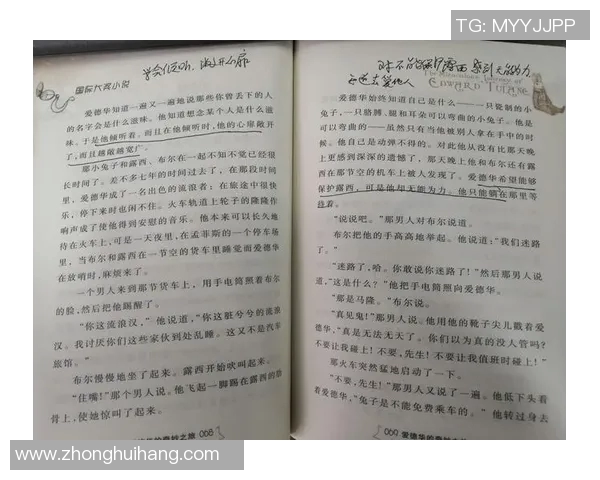 TG: MYYJJPP
学会倾听，敞开心扉
国际大奖小说
爱德华知道一遍又一遍地说那些你曾丢下的人
的名字会是什么滋味。他知道想念某个人是什么滋
味。于是他倾听着。而且在他倾听时，他的心扉敞开
了，而且越敞越宽广。
那小兔子和露西、布尔在一起不知不觉已经很
长时间了。差不多七年的时间过去了，在那段时间
里，爱德华成了一名出色的流浪者：在旅途中很快
乐，停下来时也闲不住。火车轨道上轮子的隆隆作
响声成了使他得到安慰的音乐。他本来可以长久地
待在火车上，可是一天夜里，在孟菲斯的一个停车场
里，当布尔和露西在一节空的货车里睡觉而爱德华
在放哨时，麻烦来了。
一个男人来到那节货车上，用手电筒照着布尔
的脸，然后把他踢醒了。
“你这流浪汉，”他说道，“你这脏兮兮的流浪
汉。我讨厌你们这些家伙到处乱睡。这又不是汽车
旅馆。”
布尔慢慢地坐了起来。露西开始吠叫起来。
“住嘴！”那个男人说。他飞起一脚踢在露西的肋
骨上，使她惊叫了起来。
德华的奇妙之旅 068
The Miraculous Journey of
EDWARD TULANE
爱德华始终知道自己是什么——一只瓷制的小
兔子，一只胳膊、腿和耳朵可以弯曲的小兔子。他是
可以弯曲的——虽然只有当他被别人拿在手中的时
候。他自己是动弹不得的。对此他从没有比那天晚
上更感到深深的遗憾了，那天晚上他和布尔还有露
西在那节空的机车上被人发现了。爱德华希望能够
保护露西，可是他却无能为力。他只能躺在那里等
待着。
“说说吧。”那男人对布尔说道。
布尔把他的手高高地举起。他说道：“我们迷路
了。”
“迷路了，哈。你敢说你迷路了！”然后那男人说
道，“这是什么？”他把手电筒照向爱德华。
“那是马隆。”布尔说。
“真见鬼！”那男人说。他用他的靴子尖儿戳着爱
德华，“真是无法无天了。你们以为真的没人管吗？
不要让我碰上！不要，先生！不要让我值班时碰上！”
那火车突然猛地启动了一下。
“不要，先生！”那男人又说了一遍。他低下头看
着爱德华，“兔子是不能免费乘车的。”他转过身去
069 爱德华的奇妙之
www.zhonghuihang.com